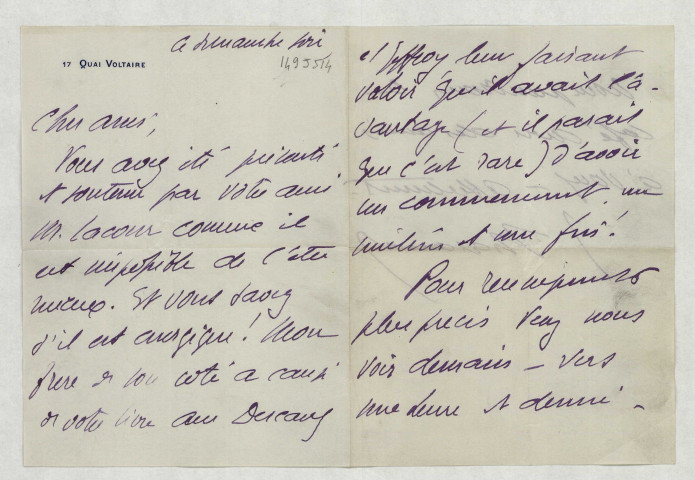 ce dimanche soir
14955/4
17 QUAI VOLTAIRE
Cher ami,
Vous avez été présenté
et soutenu par votre ami
M. Lacour comme il
est impossible de l'être
mieux. Et vous savez
s'il est énergique ! Mon
frère de son côté a causé
de votre livre avec Descaves
et Geffroy leur faisant
valoir qu'il avait l'a-
vantage (et il paraît
que c'est rare) d'avoir
un commencement, un
milieu et une fin !
Pour renseignements
plus précis venez nous
voir demain – vers
une heure et demie –